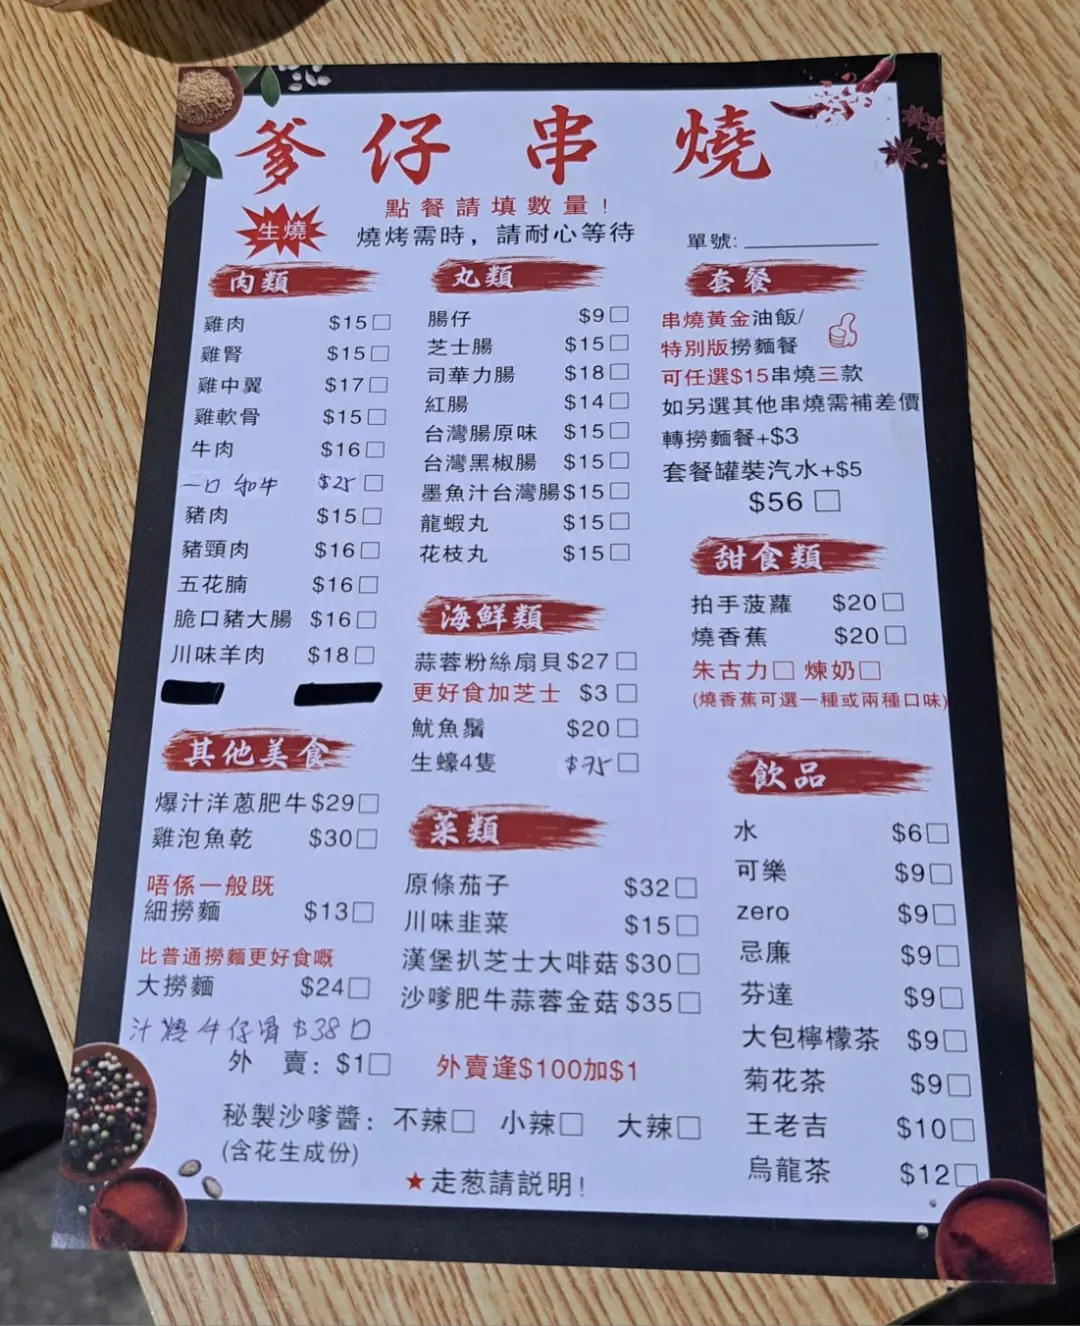 爹仔串燒
點餐請填數量!
生燒
燒烤需時，請耐心等待
單號:
肉類
雞肉 $15□
雞腎 $15□
雞中翼 $17□
雞軟骨 $15□
牛肉 $16□
一口和牛 $25□
豬肉 $15□
豬頸肉 $16□
五花腩 $16□
脆口豬大腸 $16□
川味羊肉 $18□
其他美食
爆汁洋蔥肥牛$29□
雞泡魚乾 $30□
唔係一般既
細撈麵 $13□
比普通撈麵更好食嘅
大撈麵 $24□
汁燒牛仔骨 $38□
丸類
腸仔 $9□
芝士腸 $15□
司華力腸 $18□
紅腸 $14□
台灣腸原味 $15□
台灣黑椒腸 $15□
墨魚汁台灣腸$15□
龍蝦丸 $15□
花枝丸 $15□
海鮮類
蒜蓉粉絲扇貝$27□
更好食加芝士 $3□
魷魚鬚 $20□
生蠔4隻 $75□
菜類
原條茄子 $32□
川味韭菜 $15□
漢堡扒芝士大啡菇 $30□
沙嗲肥牛蒜蓉金菇 $35□
套餐
串燒黃金油飯/
特別版撈麵餐
可任選$15串燒三款
如另選其他串燒需補差價
轉撈麵餐+$3
套餐罐裝汽水+$5
$56□
甜食類
拍手菠蘿 $20□
燒香蕉 $20□
朱古力□ 煉奶□
(燒香蕉可選一種或兩種口味)
飲品
水 $6□
可樂 $9□
zero $9□
忌廉 $9□
芬達 $9□
大包檸檬茶 $9□
菊花茶 $9□
王老吉 $10□
烏龍茶 $12□
外 賣: $1□ 外賣逢$100加$1
秘製沙嗲醬: 不辣□ 小辣□ 大辣□
(含花生成份)
★走葱請説明!